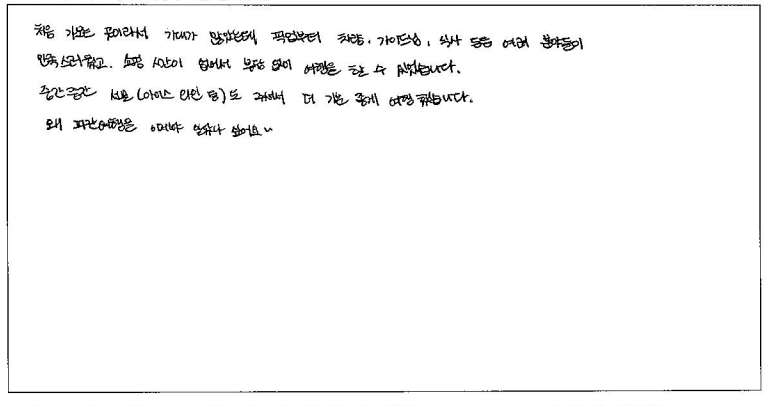 처음 가보는 곳이라서 기대가 많았는데, 픽업부터 차량, 가이드님, 식사 등등 여러 분야들이
만족스러웠고, 쇼핑 시간이 없어서 부담 없이 여행을 할 수 있었습니다.
중간중간 선물(아이스 와인 등)도 주셔서 더 기분 좋게 여행 했습니다.
왜 파란여행을 이제야 알았나 싶어요~